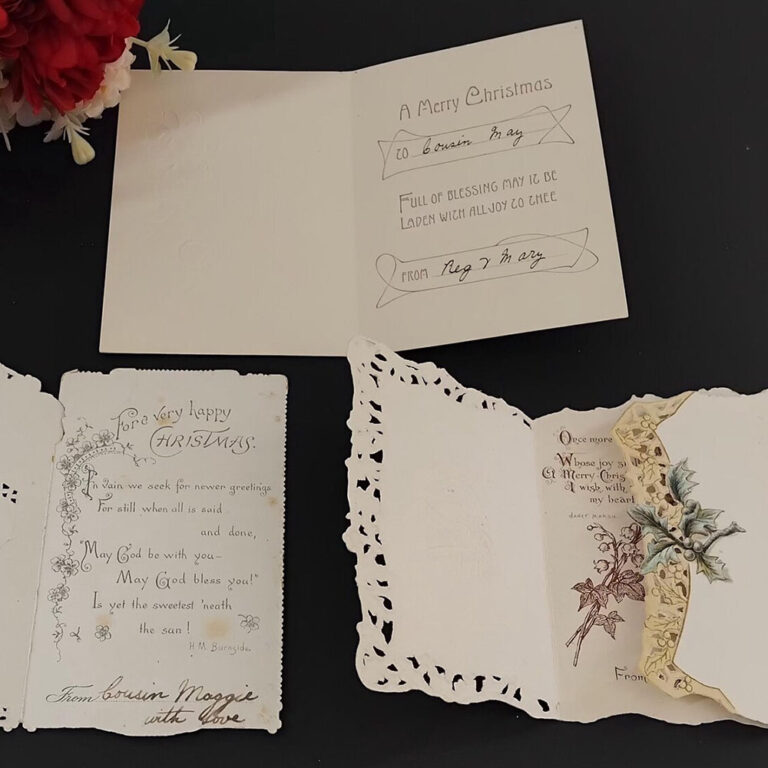 A Merry Christmas
TO Cousin May
FULL OF BLESSING MAY IT BE
LADEN WITH ALL JOY TO THEE
FROM Reg & Mary
For a very happy
CHRISTMAS.
In vain we seek for newer greetings
For still when all is said
and done,
"May God be with you—
May God bless you!"
Is yet the sweetest 'neath
the sun!
H.M. Burnside.
From Cousin Maggie
with love
Once more
Whose joy
A Merry Chris
I wish with
my heart
From